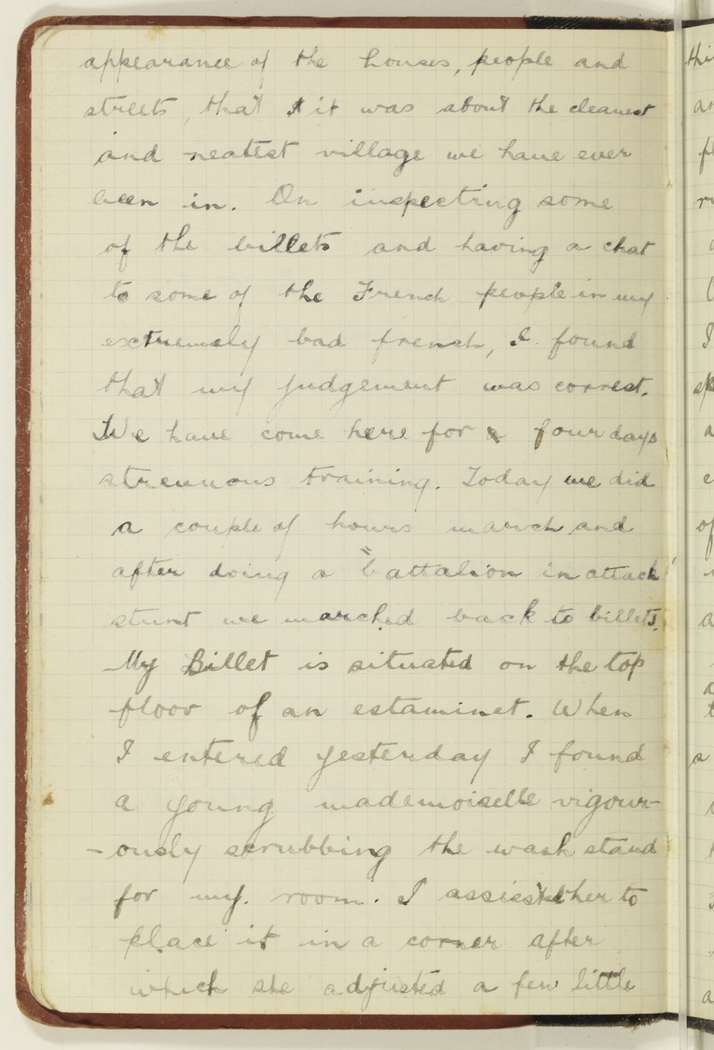 appearance of the houses, people and
streets, that it was about the cleanest
and neatest village we have ever
been in. On inspecting some
of the billets and having a chat
to some of the French people in my
extremely bad french, I found
that my judgement was correct.
We have come here for a four days
strenuous training. Today we did
a couple of hours march and
after doing a "battalion in attack"
stunt we marched back to billets.
My Billet is situated on the top
floor of an estaminet. When
I entered yesterday I found
a young mademoiselle vigour-
-ously scrubbing the wash stand
for my room. I assisted her to
place it in a corner after
which she adjusted a few little